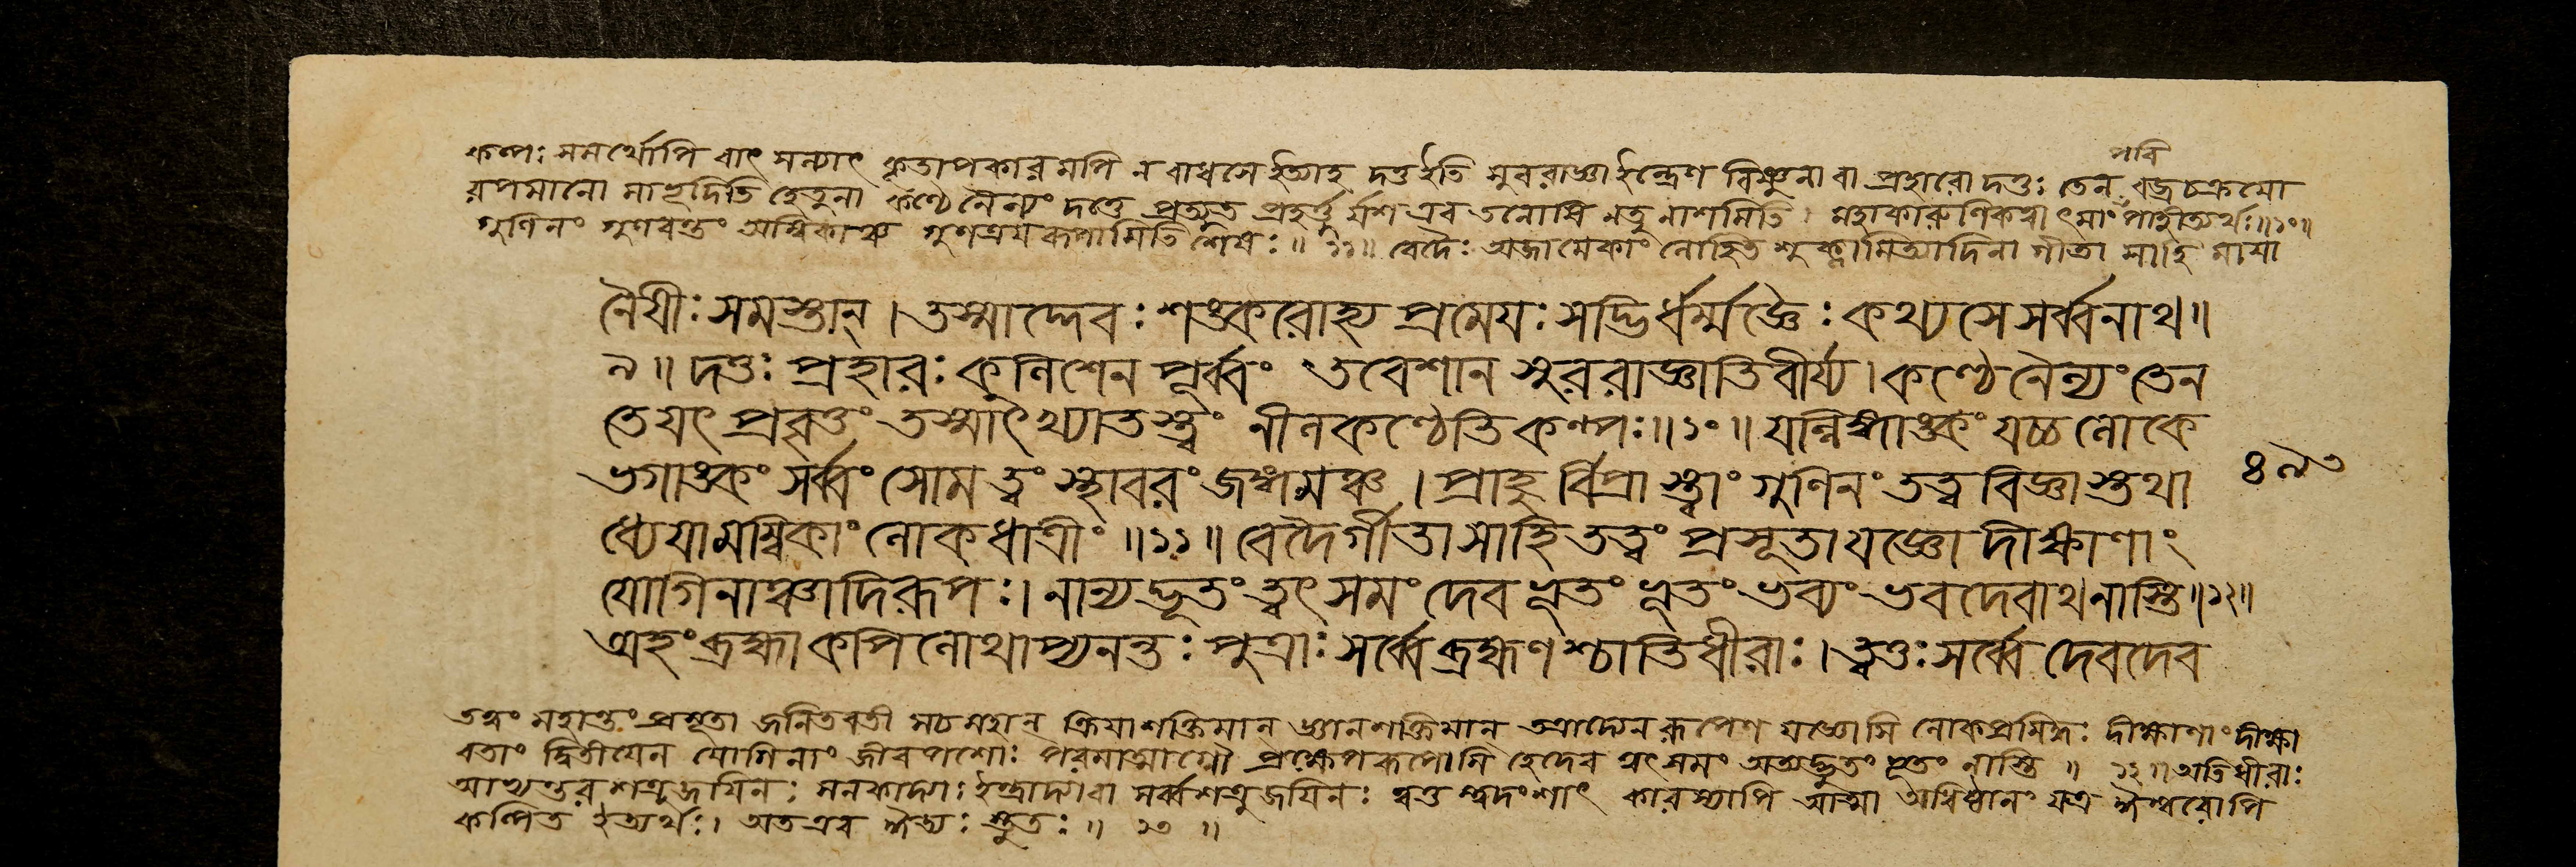 কল্পঃ সমর্থোপি বাৎসল্যাৎ কৃতাপকারমপি ন বাধসে ইত্যাহ দত্তইতি সুররাজ্ঞা ইন্দ্রেণ বিষ্ণুনা বা প্রহারো দত্তঃ তেন বজ্রচক্রয়ো
পরি
রপমানো মাভূদিতি হেতুনা কণ্ঠে নৈল্যং দত্তে প্রত্যুত প্রহর্ত্তুর্যশ এব তনোষি নতু নাশমিতি। মহাকারুণিকত্বাৎ মাং পাহীত্যর্থঃ॥১০॥
গুণিনং গুণবন্তং অম্বিকাঞ্চ গুণত্রয়রূপামিতি শেষঃ॥ ১১॥ বেদৈঃ অজামেকাং লোহিত শুক্লামিত্যাদিনা গীতা সাহি মায়া
নৈযীঃ সমস্তান্। তস্মাদ্দেবঃ শঙ্করোহ্য প্রমেযঃ সদ্ভির্ধর্ম্মজ্ঞৈঃ কথ্যসে সর্ব্বনাথ॥
৯॥ দত্তঃ প্রহারঃ কুলিশেন পূর্ব্বং তবেশান সুররাজ্ঞাতিবীর্য্য। কণ্ঠে নৈল্যং তেন
তে যৎ প্রবৃত্তং তস্মাৎ খ্যাতস্ত্বং নীলকণ্ঠেতি কল্পঃ॥১০॥ যল্লিঙ্গাঙ্কং যচ্চ লোকে
ভগাঙ্কং সর্ব্বং সোম ত্বং স্থাবরং জঙ্গমঞ্চ। প্রাহু র্বিপ্রা স্ত্বাং গুণিনং তত্ববিজ্ঞাস্তথা
৪৯৩
ধ্যেযামম্বিকাং লোকধাত্রীং॥১১॥ বেদৈর্গীতা সাহি তত্বং প্রসূতা যজ্ঞো দীক্ষাণাং
যোগিনাঞ্চাদিরূপঃ। নান্যদ্ভূতং ত্বৎ সমং দেব ভূতং ভূতং ভব্যং ভবদেবাথ নাস্তি॥১২॥
অহং ব্রহ্মা কপিলোথাপ্যনন্তঃ পুত্রাঃ সর্ব্বে ব্রহ্মণশ্চাতিধীরাঃ। ত্বত্তঃ সর্ব্বে দেবদেব
তত্বং মহান্তং প্রসূতা জনিতবতী সচ মহান্ ক্রিয়াশক্তিমান্ জ্ঞানশক্তিমান্ তত্রাদ্যেন রূপেণ যজ্ঞোসি লোকপ্রসিদ্ধঃ দীক্ষাণাং দীক্ষা
বতাং দ্বিতীয়েন যোগিনাং জীবপশোঃ পরমাত্মাগ্নৌ প্রক্ষেপরূপোসি হেদেব ত্বৎসমং অত্যদ্ভুতং ভূতং নাস্তি॥ ১২॥ অতিধীরাঃ
আভ্যন্তর শত্রুজয়িনঃ সনকাদ্যাঃ ইন্দ্রাদ্যাবা সর্ব্বশত্রুজয়িনঃ ত্বত্ত স্ত্বদংশাৎ কারস্যাপি আত্মা অধিষ্ঠানং যত্র ঈশ্বরোপি
কল্পিত ইত্যর্থঃ। অতএব ঈড্যঃ স্তুতঃ॥ ১৩॥